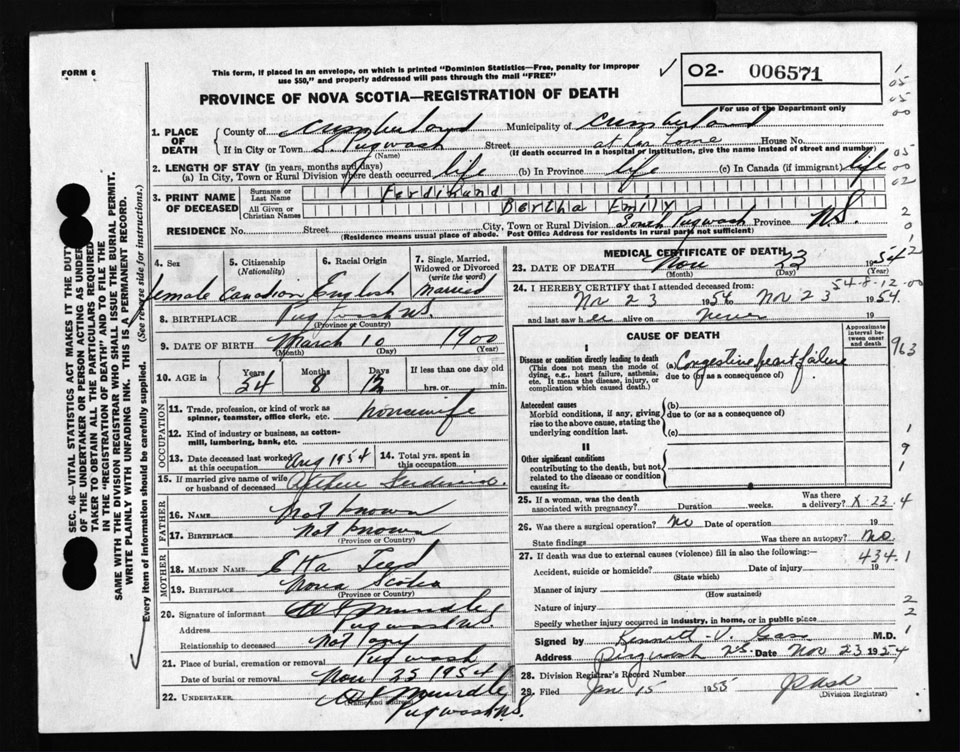 FORM 6
This form, if placed in an envelope, on which is printed "Dominion Statistics—Free, penalty for improper
use $50," and properly addressed will pass through the mail "FREE"
✓ 02- 006571
PROVINCE OF NOVA SCOTIA—REGISTRATION OF DEATH
For use of the Department only
1. PLACE OF DEATH { County of Cumberland Municipality of Cumberland
If in City or Town S. Pugwash Street at House No.
(Name) (If death occurred in a hospital or institution, give the name instead of street and number)
2. LENGTH OF STAY (in years, months and days)
(a) In City, Town or Rural Division where death occurred life (b) In Province life (c) In Canada (if immigrant) life
3. PRINT NAME OF DECEASED { Surname or Last Name Ferdinand
All Given or Christian Names Bertha Emily
RESIDENCE No. Street City, Town or Rural Division South Pugwash Province N.S.
(Residence means usual place of abode. Post Office Address for residents in rural parts not sufficient)
SEC. 46—VITAL STATISTICS ACT MAKES IT THE DUTY
OF THE UNDERTAKER OR PERSON ACTING AS UNDER-
TAKER TO OBTAIN ALL THE PARTICULARS REQUIRED
IN THE "REGISTRATION OF DEATH" AND TO FILE THE
SAME WITH THE DIVISION REGISTRAR WHO SHALL ISSUE THE BURIAL PERMIT.
WRITE PLAINLY WITH UNFADING INK. THIS IS A PERMANENT RECORD.
Every item of information should be carefully supplied. (See reverse side for instructions.)
4. Sex 5. Citizenship (Nationality) 6. Racial Origin 7. Single, Married, Widowed or Divorced (write the word)
female Canadian English married
8. BIRTHPLACE Pugwash N.S.
(Province or Country)
9. DATE OF BIRTH March 10 1900
(Month) (Day) (Year)
10. AGE in { Years Months Days If less than one day old
54 8 13 hrs. or min.
OCCUPATION
11. Trade, profession, or kind of work as spinner, teamster, office clerk, etc. housewife
12. Kind of industry or business, as cotton-mill, lumbering, bank, etc.
13. Date deceased last worked at this occupation Aug 1954 14. Total yrs. spent in this occupation
15. If married give name of wife or husband of deceased Ferdinand
FATHER
16. NAME Not known
17. BIRTHPLACE Not known
(Province or Country)
MOTHER
18. MAIDEN NAME Teed
19. BIRTHPLACE Nova Scotia
(Province or Country)
20. Signature of informant
Address Pugwash N.S.
Relationship to deceased Not any
21. Place of burial, cremation or removal Pugwash
Date of burial or removal Nov 23 1954
22. UNDERTAKER
(Name and address)
Pugwash N.S.
MEDICAL CERTIFICATE OF DEATH
23. DATE OF DEATH Nov 23 1954
(Month) (Day) (Year)
54-8-12-00
24. I HEREBY CERTIFY that I attended deceased from:
Nov 23 1954 to Nov 23 1954
and last saw her alive on Never 19
CAUSE OF DEATH
Approximate interval between onset and death
I
Disease or condition directly leading to death
(This does not mean the mode of dying, e.g., heart failure, asthenia, etc. It means the disease, injury, or complication which caused death.)
(a) Congestive heart failure
due to (or as a consequence of)
Antecedent causes
Morbid conditions, if any, giving rise to the above cause, stating the underlying condition last.
(b)
due to (or as a consequence of)
(c)
II
Other significant conditions
contributing to the death, but not related to the disease or condition causing it.
25. If a woman, was the death associated with pregnancy? Duration weeks. Was there a delivery? X-23-4
26. Was there a surgical operation? No Date of operation 19
State findings Was there an autopsy? No
27. If death was due to external causes (violence) fill in also the following:— 434.1
Accident, suicide or homicide? Date of injury 19
(State which)
Manner of injury
(How sustained)
Nature of injury
Specify whether injury occurred in industry, in home, or in public place
Signed by Kenneth V. Gass M.D.
Address Pugwash N.S. Date Nov 23 1954
28. Division Registrar's Record Number
29. Filed Jan 15 1955
(Division Registrar)